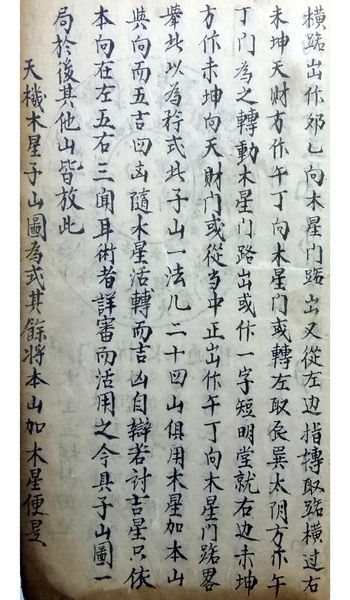 橫路出作夘乙向木星门路出又從左边指轉取路橫过右
未坤天财方作午丁向木星门或轉左取辰巽太阴方作午
丁门為之轉動木星门路出或作一字短明堂就右边未坤
方作未坤向天财门或從当中正出作午丁向木星门路畧
舉此以為移式此子山一法凡二十四山俱用木星加本山
與向而五吉四凶隨木星活轉而吉凶自辯若討吉星只依
本向在左五右三聞耳術者詳審而活用之今具子山圖一
局於後其他山皆放此
天機木星子山圖為式其餘將本山加木星便是